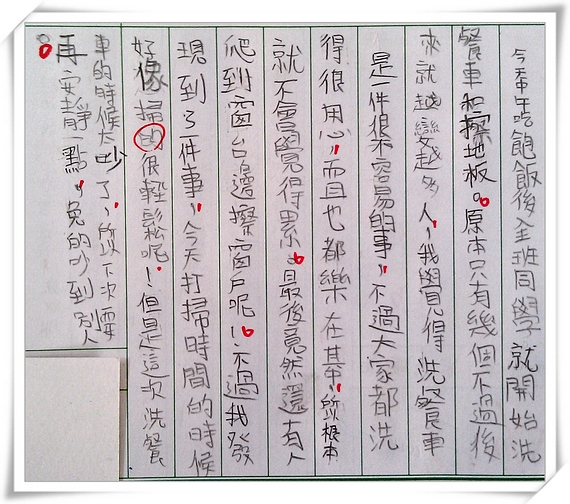 今天吃飽飯後全班同學就開始洗
餐車和擦地板。原本只有幾個不過後
來就越變越多人,我覺得洗餐車
是一件很不容易的事,不過大家都洗
得很用心,而且也都樂在其中,所以根本
就不會覺得累。最後竟然還有人
爬到窗台邊擦窗戶呢!不過我發
現到了一件事,今天打掃時間的時候
好像掃的很輕鬆呢!但是這次洗餐
車的時候太吵了,所以下次要
再安靜一點,免的吵到別人
。